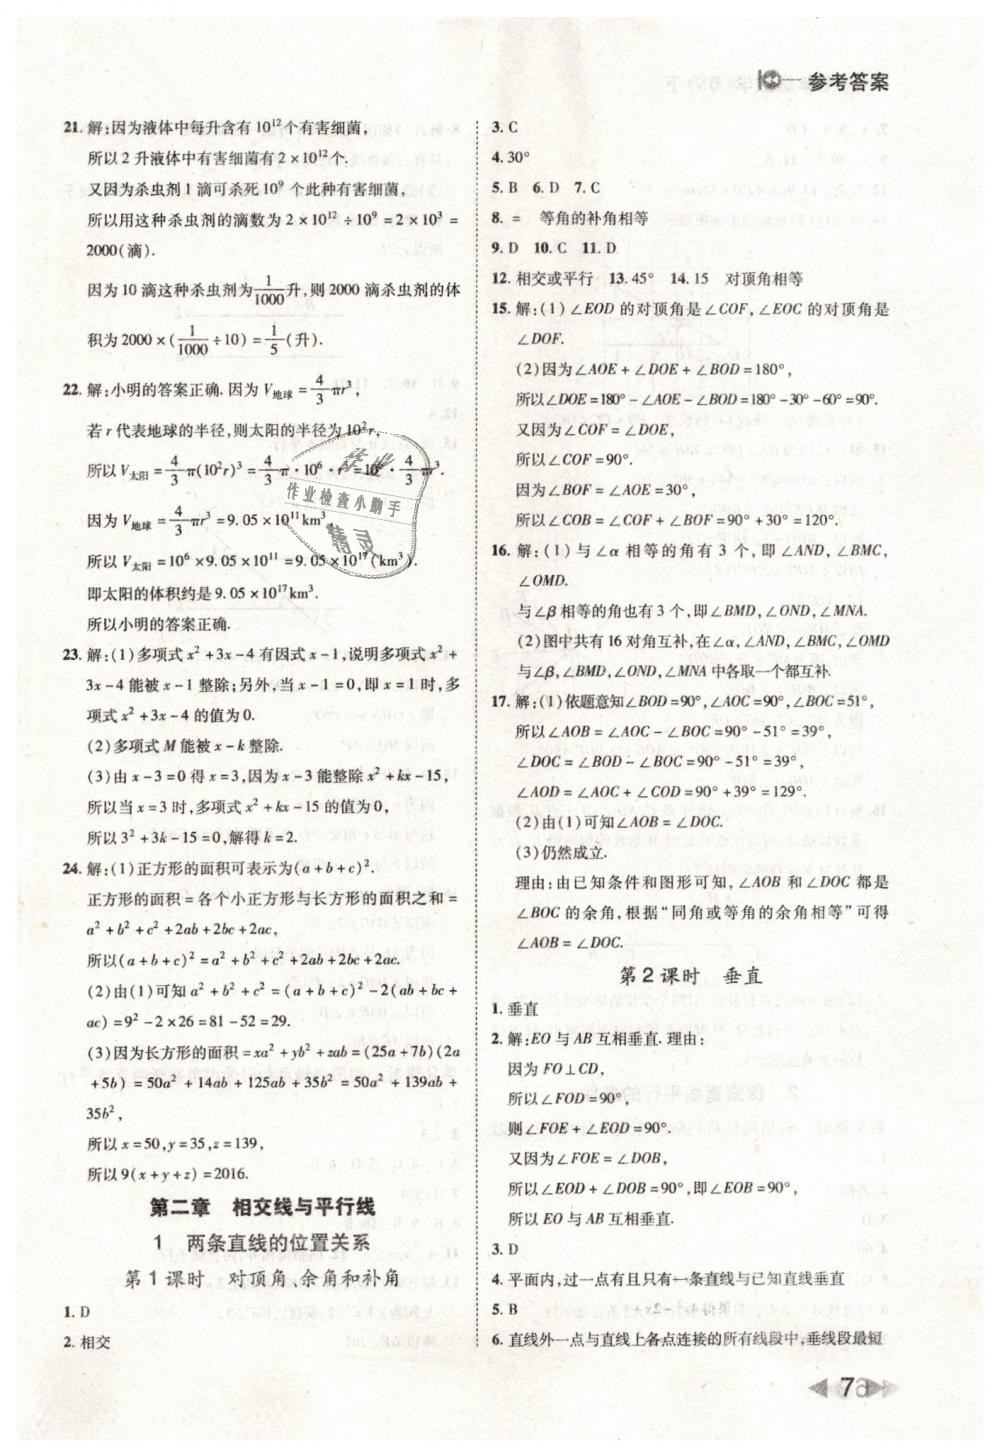 参考答案
21. 解:因为液体中每升含有10¹²个有害细菌,
所以2升液体中有害细菌有2×10¹²个.
又因为杀虫剂1滴可杀死10⁹个此种有害细菌,
所以用这种杀虫剂的滴数为2×10¹²÷10⁹=2×10³=
2000(滴).
因为10滴这种杀虫剂为1/1000升,则2000滴杀虫剂的体
积为2000×(1/1000÷10)=1/5(升).
22. 解:小明的答案正确.因为V地球=4/3πr³,
若r代表地球的半径,则太阳的半径为10²r.
所以V太阳=4/3π(10²r)³=4/3π·10⁶·r³=10⁶·4/3πr³.
因为V地球=4/3πr³=9.05×10¹¹km³,
所以V太阳=10⁶×9.05×10¹¹=9.05×10¹⁷(km³).
即太阳的体积约是9.05×10¹⁷km³.
所以小明的答案正确.
23. 解:(1)多项式x²+3x-4有因式x-1,说明多项式x²+
3x-4能被x-1整除;另外,当x-1=0,即x=1时,多
项式x²+3x-4的值为0.
(2)多项式M能被x-k整除.
(3)由x-3=0得x=3,因为x-3能整除x²+kx-15,
所以当x=3时,多项式x²+kx-15的值为0,
所以3²+3k-15=0,解得k=2.
24. 解:(1)正方形的面积可表示为(a+b+c)².
正方形的面积=各个小正方形与长方形的面积之和=
a²+b²+c²+2ab+2bc+2ac,
所以(a+b+c)²=a²+b²+c²+2ab+2bc+2ac.
(2)由(1)可知a²+b²+c²=(a+b+c)²-2(ab+bc+
ac)=9²-2×26=81-52=29.
(3)因为长方形的面积=xa²+yb²+zab=(25a+7b)(2a
+5b)=50a²+14ab+125ab+35b²=50a²+139ab+
35b²,
所以x=50,y=35,z=139,
所以9(x+y+z)=2016.
第二章 相交线与平行线
1 两条直线的位置关系
第1课时 对顶角、余角和补角
1. D
2. 相交
3. C
4. 30°
5. B 6. D 7. C
8. = 等角的补角相等
9. D 10. C 11. D
12. 相交或平行 13. 45° 14. 15 对顶角相等
15. 解:(1)∠EOD的对顶角是∠COF,∠EOC的对顶角是
∠DOF.
(2)因为∠AOE+∠DOE+∠BOD=180°,
所以∠DOE=180°-∠AOE-∠BOD=180°-30°-60°=90°.
又因为∠COF=∠DOE,
所以∠COF=90°.
因为∠BOF=∠AOE=30°,
所以∠COB=∠COF+∠BOF=90°+30°=120°.
16. 解:(1)与∠α相等的角有3个,即∠AND,∠BMC,
∠OMD.
与∠β相等的角也有3个,即∠BMD,∠OND,∠MNA.
(2)图中共有16对角互补,在∠α,∠AND,∠BMC,∠OMD
与∠β,∠BMD,∠OND,∠MNA中各取一个都互补.
17. 解:(1)依题意知∠BOD=90°,∠AOC=90°,∠BOC=51°,
所以∠AOB=∠AOC-∠BOC=90°-51°=39°,
∠DOC=∠BOD-∠BOC=90°-51°=39°,
∠AOD=∠AOC+∠COD=90°+39°=129°.
(2)由(1)可知∠AOB=∠DOC.
(3)仍然成立.
理由:由已知条件和图形可知,∠AOB和∠DOC都是
∠BOC的余角,根据“同角或等角的余角相等”可得
∠AOB=∠DOC.
第2课时 垂直
1. 垂直
2. 解:EO与AB互相垂直.理由:
因为FO⊥CD,
所以∠FOD=90°,
则∠FOE+∠EOD=90°.
又因为∠FOE=∠DOB,
所以∠EOD+∠DOB=90°,即∠EOB=90°,
所以EO与AB互相垂直.
3. D
4. 平面内,过一点有且只有一条直线与已知直线垂直
5. B
6. 直线外一点与直线上各点连接的所有线段中,垂线段最短
作业
作业检查小助手
精灵
7